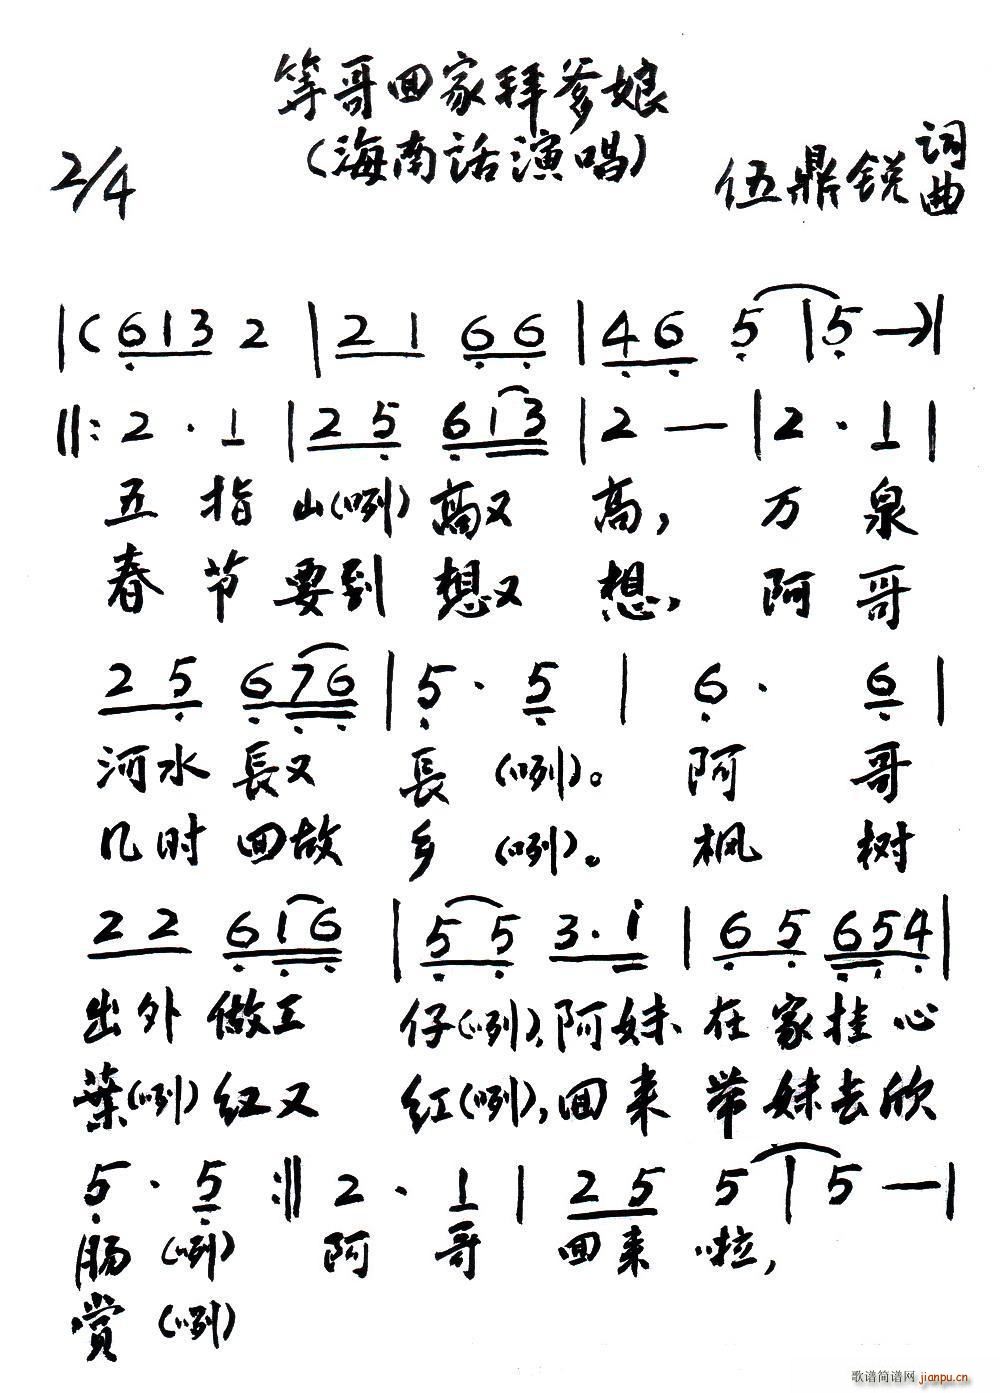 等哥回家拜爹娘
(海南话演唱)
2/4
伍鼎锐 词曲
|(613 2 |21 66|46 5 |5 —)|
||: 2 · 1 |25 613|2 — |2 · 1|
五 指 山(咧)高又 高, 万 泉
春 节 要到 想又 想, 阿 哥
25 676 |5 · 5 | 6 · 6 |
河水 長又 長 (咧)。 阿 哥
几时 回故 乡 (咧)。 枫 树
22 616 |55 3·i |65 654|
出外 做工 仔(咧),阿妹 在家挂心
葉(咧)红又 红(咧),回来 带妹去欣
5 · 5 :|| 2 · 1 | 25 5 |5 —|
肠 (咧) 阿 哥 回来 啦,
赏 (咧)
歌谱简谱网 jianpu.cn